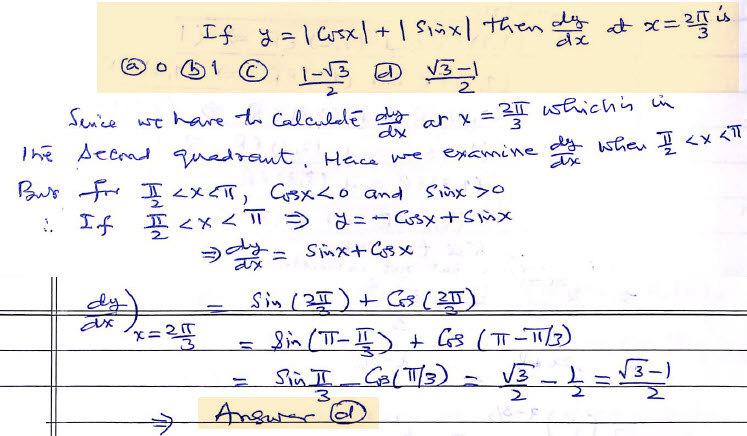 If y = |Cosx| + | Sinx| then dy/dx at x = 2π/3 is
(a) 0 (b) 1 (c) (1-√3)/2 (d) (√3-1)/2
Since we have to Calculate dy/dx at x = 2π/3 which is in
the Second quadrant. Hece we examine dy/dx when π/2 < x < π
But for π/2 < x < π, Cosx < 0 and Sinx > 0
∴ If π/2 < x < π ⇒ y = - Cosx + Sinx
⇒ dy/dx = Sinx + Cosx
dy/dx) x = 2π/3 = Sin (2π/3) + Cos (2π/3)
= Sin (π - π/3) + Cos (π - π/3)
= Sin π/3 - Cos (π/3) = √3/2 - 1/2 = (√3-1)/2
⇒ Answer (d)